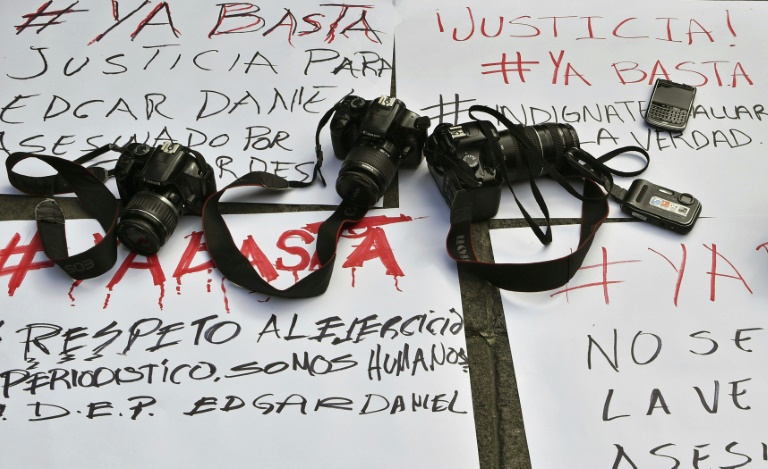 # YA BASTA
JUSTICIA PARA
EDGAR DANIEL
ASESINADO POR
¡JUSTICIA!
# YA BASTA
#INDIGNATE
LA VERDAD.
# YA BASTA
RESPETO AL EJERCICIO
PERIODISTICO. SOMOS HUMANOS
D.E.P. EDGAR DANIEL
# YA
NO SE
LA VE
ASESI
EOS